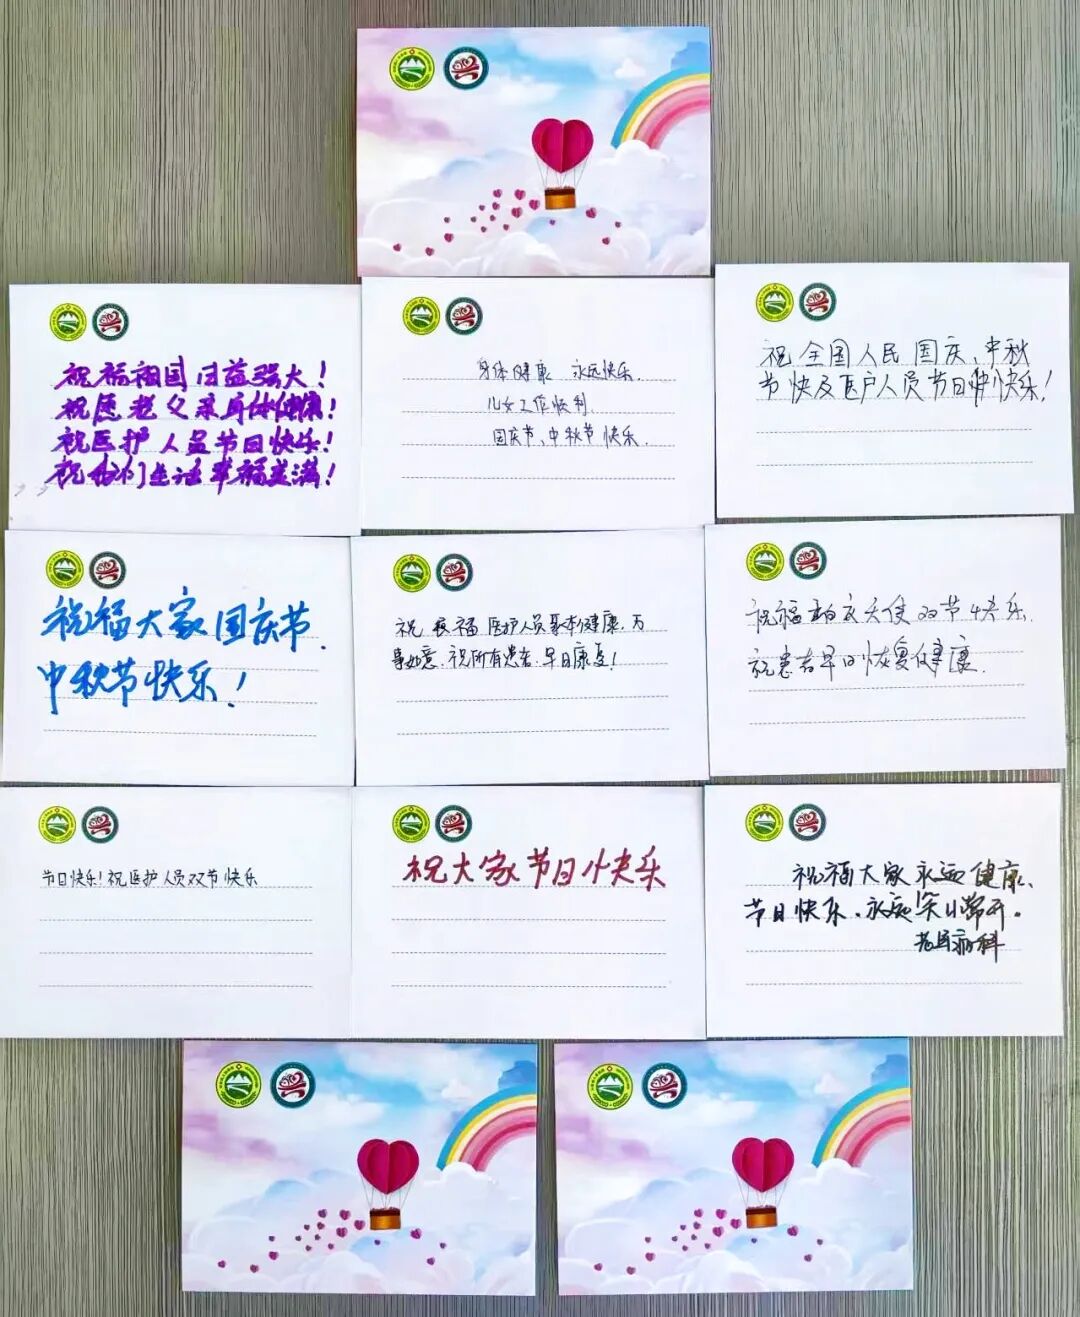 祝福祖国日益强大！
祝愿老父亲身体健康！
祝医护人员节日快乐！
祝我们生活幸福美满！
身体健康 永远快乐.
儿女工作顺利.
国庆节、中秋节快乐.
祝全国人民国庆、中秋
节快及医户人员节日快乐！
祝福大家国庆节、
中秋节快乐！
祝福医护人员身体健康.万
事如意.祝所有患者.早日康复！
祝福白衣天使双节快乐.
祝患者早日恢复健康.
节日快乐！祝医护人员双节快乐
祝大家节日快乐
祝福大家永远健康、
节日快乐.永远笑口常开。
老年病科